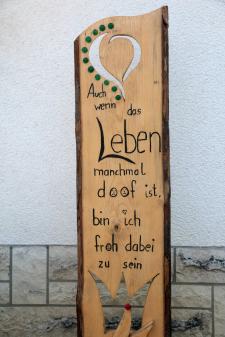 Auch
wenn das
Leben
manchmal
doof ist,
bin ich
froh dabei
zu sein